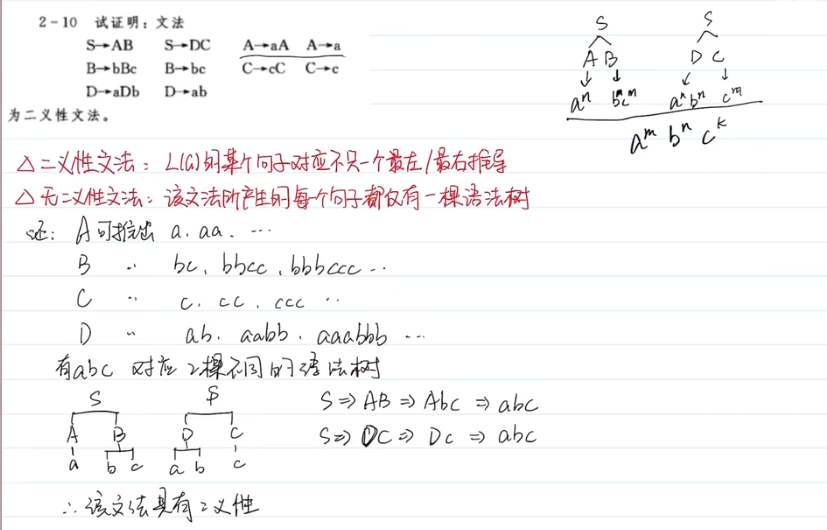 2-10 试证明：文法
S→AB S→DC A→aA A→a
B→bBc B→bc C→cC C→c
D→aDb D→ab
为二义性文法。
S S
A B D C
aⁿ bᵐcᵐ aⁿbⁿ cᵐ
aᵐ bⁿ cᵏ
△二义性文法：L(G)的某个句子对应不只一个最左/最右推导
△无二义性文法：该文法所产生的每个句子都仅有一棵语法树
证：A可推出 a、aa、…
B 〃 bc、bbcc、bbbccc…
C 〃 c、cc、ccc…
D 〃 ab、aabb、aaabbb…
有abc 对应2棵不同的语法树
S S S⇒AB⇒Abc⇒abc
A B D C S⇒DC⇒Dc⇒abc
a b c a b c
∴该文法具有二义性